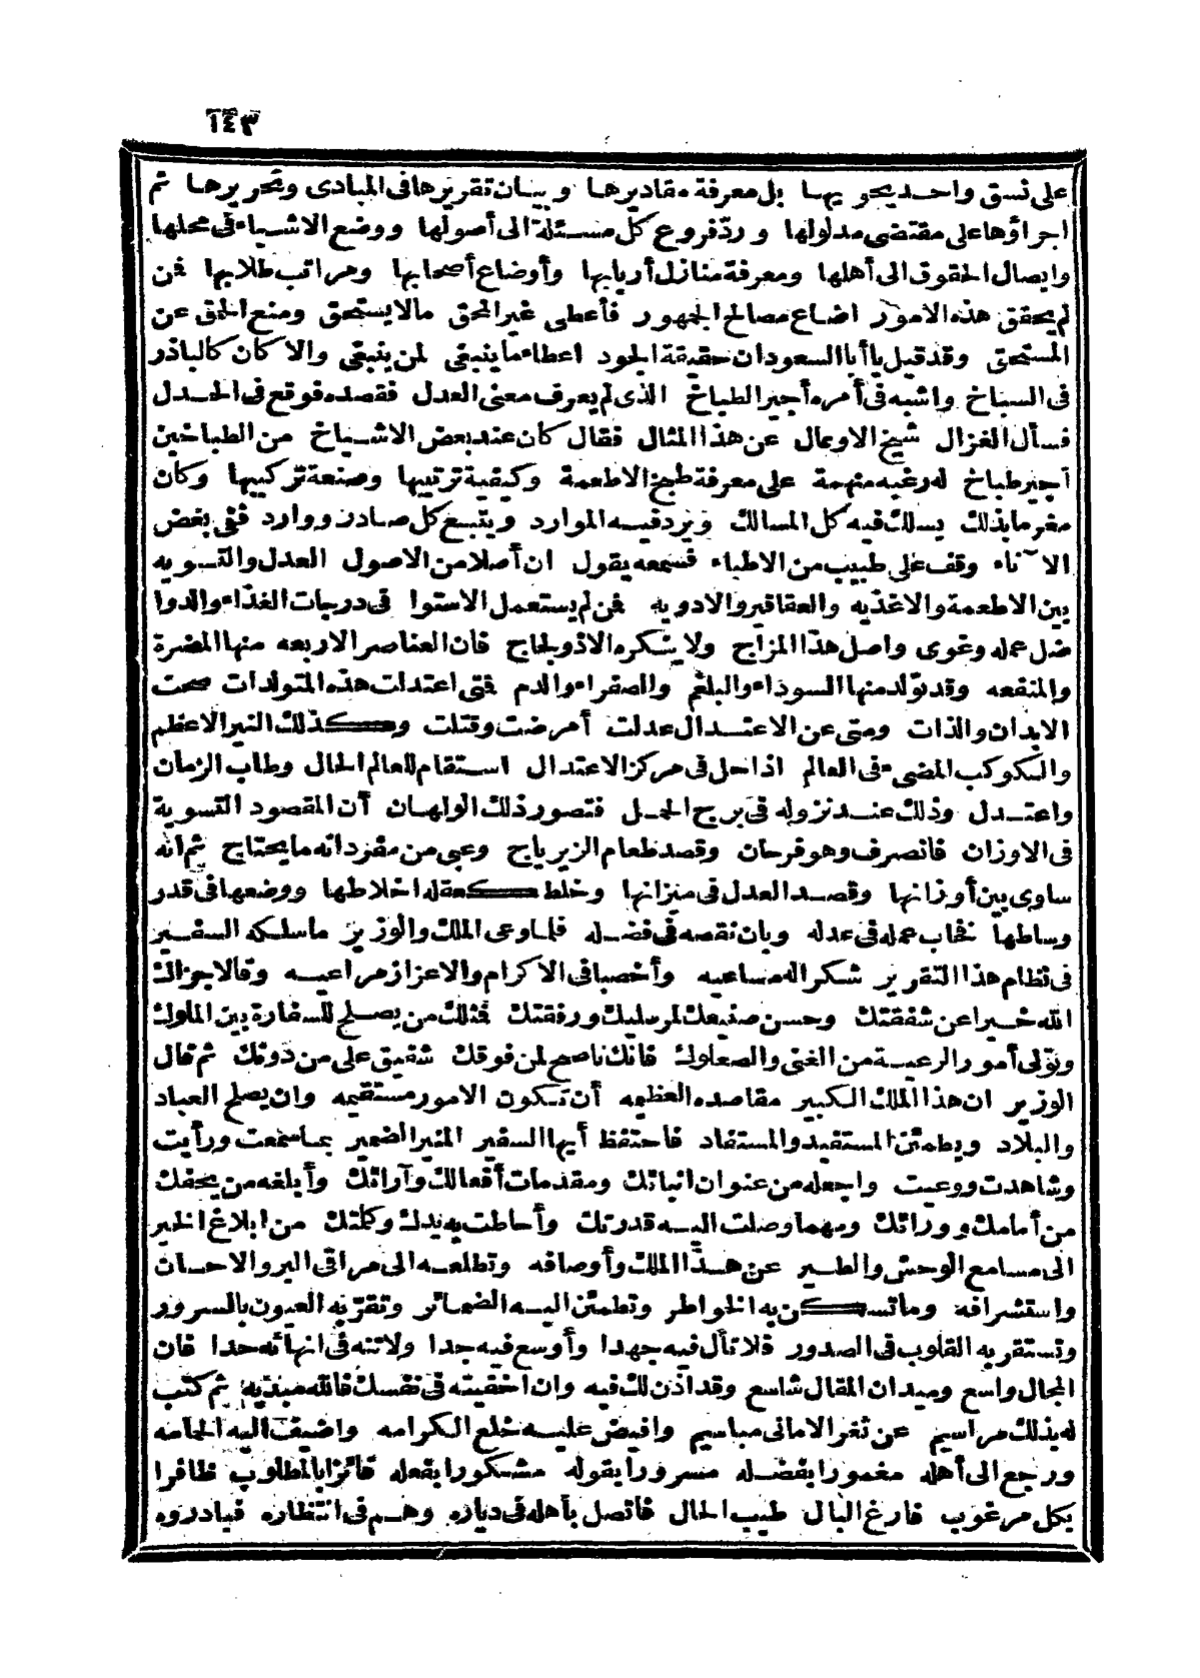 ١٤٣
على نسق واحد يحويها بل معرفة مقاديرها وبيان تقريرها فى المبادى وتحريرها ثم
اجراؤها على مقتضى مدلولها وردّ فروع كل مسئلة الى أصولها ووضع الاشياء فى محلها
وايصال الحقوق الى أهلها ومعرفة منازل أربابها وأوضاع أصحابها ومراتب طلابها فمن
لم يحقق هذه الامور اضاع مصالح الجهور فأعطى غير المحق مالا يستحق ومنع الحق عن
المستحق وقد قيل يا أبا السعود ان حقيقة الجود اعطاء ما ينبغى لمن ينبغى والا كان كالباذر
فى السباخ واشبه فى أمره أجير الطباخ الذى لم يعرف معنى العدل فقصده فوقع فى الجدل
فسأل الغزال شيخ الاوعال عن هذا المثال فقال كان عند بعض الاشياخ من الطباخين
أجير طباخ له رغبه منهمة على معرفة طبخ الاطعمة وكيفية ترتيبها وصنعة تركيبها وكان
مغرما بذلك يسلك فيه كل المسالك ويرد فيه الموارد ويتبع كل صادر ووارد ففى بعض
الآناء وقف على طبيب من الاطباء فسمعه يقول ان أصلا من الاصول العدل والتسويه
بين الاطعمة والاغذيه والعقاقير والادويه فمن لم يستعمل الاستوا فى درجات الغذاء والدوا
ضل عمله وغوى واصل هذا المزاج ولا ينكره الا ذو لجاج فان العناصر الاربعه منها المضرة
والمنفعه وقد تولد منها السوداء والبلغم والصفراء والدم فمتى اعتدلت هذه المتولدات صحت
الابدان والذات ومتى عن الاعتدال عدلت أمرضت وقتلت وكذلك النير الاعظم
والكوكب المضىء فى العالم اذا حل فى مركز الاعتدال استقام للعالم الحال وطاب الزمان
واعتدل وذلك عند نزوله فى برج الحمل فتصور ذلك الولهان أن المقصود التسوية
فى الاوزان فانصرف وهو فرحان وقصد طعام الزيرباج وعبى من مفرداته ما يحتاج ثم انه
ساوى بين أوزانها وقصد العدل فى ميزانها وخلط كعقله اخلاطها ووضعها فى قدر
وساطها فخاب عمله فى عدله وبان نقصه فى فضله فلما وعى الملك والوزير ما سلكه السفير
فى نظام هذا التقرير شكرا له مساعيه وأخصبا فى الاكرام والاعزاز مراعيه وقالا جزاك
الله خيرا عن شفقتك وحسن صنيعك لمرسليك ورفقتك فمثلك من يصلح للسفارة بين الملوك
وتولى أمور الرعية من الغنى والصعلوك فانك ناصح لمن فوقك شفيق على من دونك ثم قال
الوزير ان هذا الملك الكبير مقاصده العظيمه أن تكون الامور مستقيمه وان يصلح العباد
والبلاد ويطمئن المستفيد والمستفاد فاحتفظ أيها السفير المنير الضمير بما سمعت ورأيت
وشاهدت ووعيت واجعله من عنوان انبائك ومقدمات أفعالك وآرائك وأبلغه من يحفك
من أمامك وورائك ومهما وصلت اليه قدرتك وأحاطت به يدك وكلمتك من ابلاغ الخير
الى مسامع الوحش والطير عن هذا الملك وأوصافه وتطلعه الى مراقى البر والاحسان
واستشرافه وما تسكن به الخواطر وتطمئن اليه الضمائر وتقرّ به العيون بالسرور
وتستقر به القلوب فى الصدور فلا تأل فيه جهدا وأوسع فيه جدا ولا تنه فى انهائه حدا فان
المجال واسع وميدان المقال شاسع وقد اذن لك فيه وان اخفيته فى نفسك فالله مبديه ثم كتب
له بذلك مراسيم عن ثغر الامانى مباسيم وافيض عليه خلع الكرامه واضيف اليه الحمامه
ورجع الى أهله مغمورا بفضله مسرورا بقوله مشكورا بفعله فائزا بالمطلوب ظافرا
بكل مرغوب فارغ البال طيب الحال فاتصل بأهله فى دياره وهم فى انتظاره فبادروه